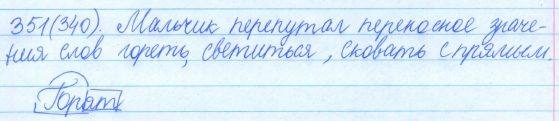 351(340). Мальчик перепутал переносное значе-
ния слов гореть, светиться, сковать с прямым.
Горат